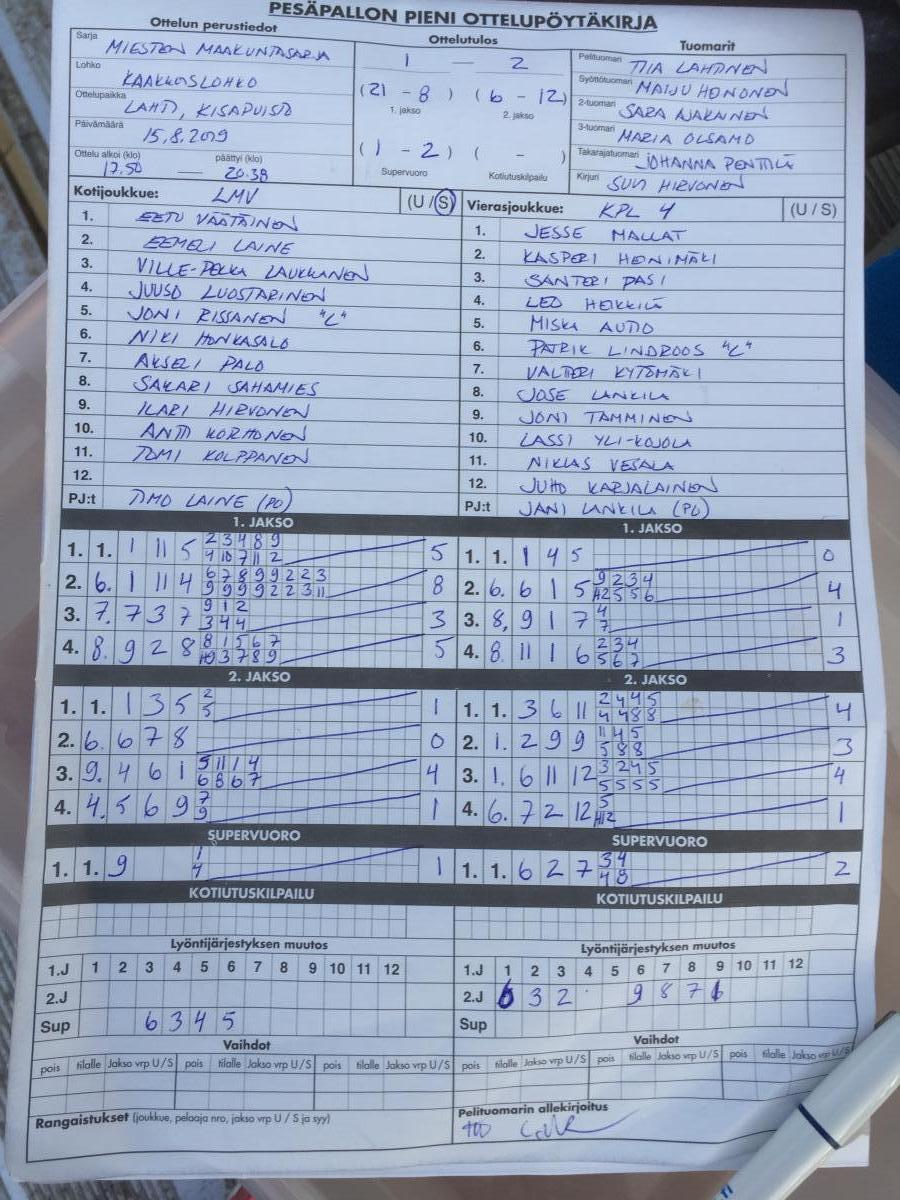 PESÄPALLON PIENI OTTELUPÖYTÄKIRJA
Ottelun perustiedot
Ottelutulos
Tuomarit
Sarja MIESTEN MAAKUNTASARJA
Lohko KAAKKOSLOHKO
Ottelupaikka LAHTI, KISAPUISTO
Päivämäärä 15.8.2019
Ottelu alkoi (klo) 17.50 — päättyi (klo) 20.38
1 — 2
(21 - 8) (6 - 12)
1. jakso 2. jakso
(1 - 2) ( - )
Supervuoro Kotiutuskilpailu
Pelituomari TIIA LAHTINEN
Syöttötuomari MAIJU HONONEN
2-tuomari SARA AJAKAINEN
3-tuomari MARIA OLSAMO
Takarajatuomari JOHANNA PENTTILÄ
Kirjuri SUVI HIRVONEN
Kotijoukkue: LMV (U / S)
Vierasjoukkue: KPL 4 (U / S)
1. EETU VÄÄTÄINEN
2. EEMELI LAINE
3. VILLE-PEKKA LAUKKANEN
4. JUUSO LUOSTARINEN
5. JONI RISSANEN "C"
6. NIKI HONKASALO
7. AKSELI PALO
8. SAKARI SAHAMIES
9. ILARI HIRVONEN
10. ANTTI KORHONEN
11. TOMI KOLPPANEN
12.
PJ:t TIMO LAINE (PO)
1. JESSE MALLAT
2. KASPERI HEINIMÄKI
3. SANTERI PASI
4. LEO HEIKKILÄ
5. MISKA AUTIO
6. PATRIK LINDROOS "C"
7. VALTTERI KYTÖMÄKI
8. JOSE LANKILA
9. JONI TAMMINEN
10. LASSI YLI-KOJOLA
11. NIKLAS VESALA
12. JUHO KARJALAINEN
PJ:t JANI LANKILA (PO)
1. JAKSO
1. 1. 1 11 5 2 3 4 8 9
4 10 7 11 2 5
2. 6. 1 11 4 6 7 8 9 9 2 2 3
9 9 9 9 2 2 3 11 8
3. 7. 7 3 7 9 1 2
3 4 4 3
4. 8. 9 2 8 8 1 5 6 7
10 3 7 8 9 5
1. JAKSO
1. 1. 1 4 5 0
2. 6. 6 1 5 9 2 3 4
12 5 5 6 4
3. 8. 9 1 7 4
7 1
4. 8. 11 1 6 2 3 4
5 6 7 3
2. JAKSO
1. 1. 1 3 5 2
5 1
2. 6. 6 7 8 0
3. 9. 4 6 1 5 11 1 4
6 8 6 7 4
4. 4. 5 6 9 7
9 1
2. JAKSO
1. 1. 3 6 11 2 4 4 5
4 4 8 8 4
2. 1. 2 9 9 11 4 5
5 8 8 3
3. 1. 6 11 12 3 2 4 5
5 5 5 5 4
4. 6. 7 2 12 5
12 1
SUPERVUORO
1. 1. 9 1
4 1
SUPERVUORO
1. 1. 6 2 7 3 4
4 8 2
KOTIUTUSKILPAILU
KOTIUTUSKILPAILU
Lyöntijärjestyksen muutos
1.J 1 2 3 4 5 6 7 8 9 10 11 12
2.J
Sup 6 3 4 5
Lyöntijärjestyksen muutos
1.J 1 2 3 4 5 6 7 8 9 10 11 12
2.J 6 3 2 9 8 7 1
Sup
Vaihdot
pois tilalle Jakso vrp U / S pois tilalle Jakso vrp U / S pois tilalle Jakso vrp U / S
Vaihdot
pois tilalle Jakso vrp U / S pois tilalle Jakso vrp U / S pois tilalle Jakso vrp U/S
Rangaistukset (joukkue, pelaaja nro, jakso vrp U / S ja syy)
Pelituomarin allekirjoitus